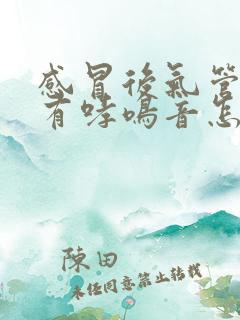 感冒後氣管
有哮鳴音怎
陳田
未經同意禁止轉載